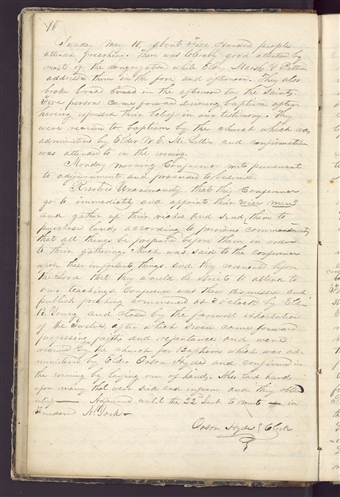 16
Sunday May 10, about five Hundred people
attend preaching. There was tolerable good attention by
most of the congregation while Elders Marsh & Patten
address them in the fore and afternoon. They also
broke bread in the afternoon by the Saints
Five persons came forward desiring baptism after
having their belief in our testimony. They
were received to baptism by the church which was
administered by Elder W. E. McLellin and confirmation
was attended to in the evening.
Monday morning Conference met pursuant
to adjournment and proceeded to business.
Resolved Unanimously that this Conference
go to immediately and appoint their wise men
and gather up their riches and send them to
purchase lands according to previous commandments
that all things be prepared before them in order
to their gathering. Much was said to the Conference
upon these important things. And they covenanted before
the Lord that they would be strict to attend to
our teachings. Conference was then dismissed and
publick preaching commenced at 2 o'clock by Elder
B. Young and closed by the farewell exhortation
of the Twelve, after which seven came forward
professing faith and repentance and were
received by the church for baptism which was ad-
ministered by Elder Orson Hyde and confirmed in
the evening by laying on of hands. Also laid hands
upon many that were sick and infirm and they obtained
relief — Adjourned until the 22 Inst to meet in
N. York —
Orson Hyde } Clerk